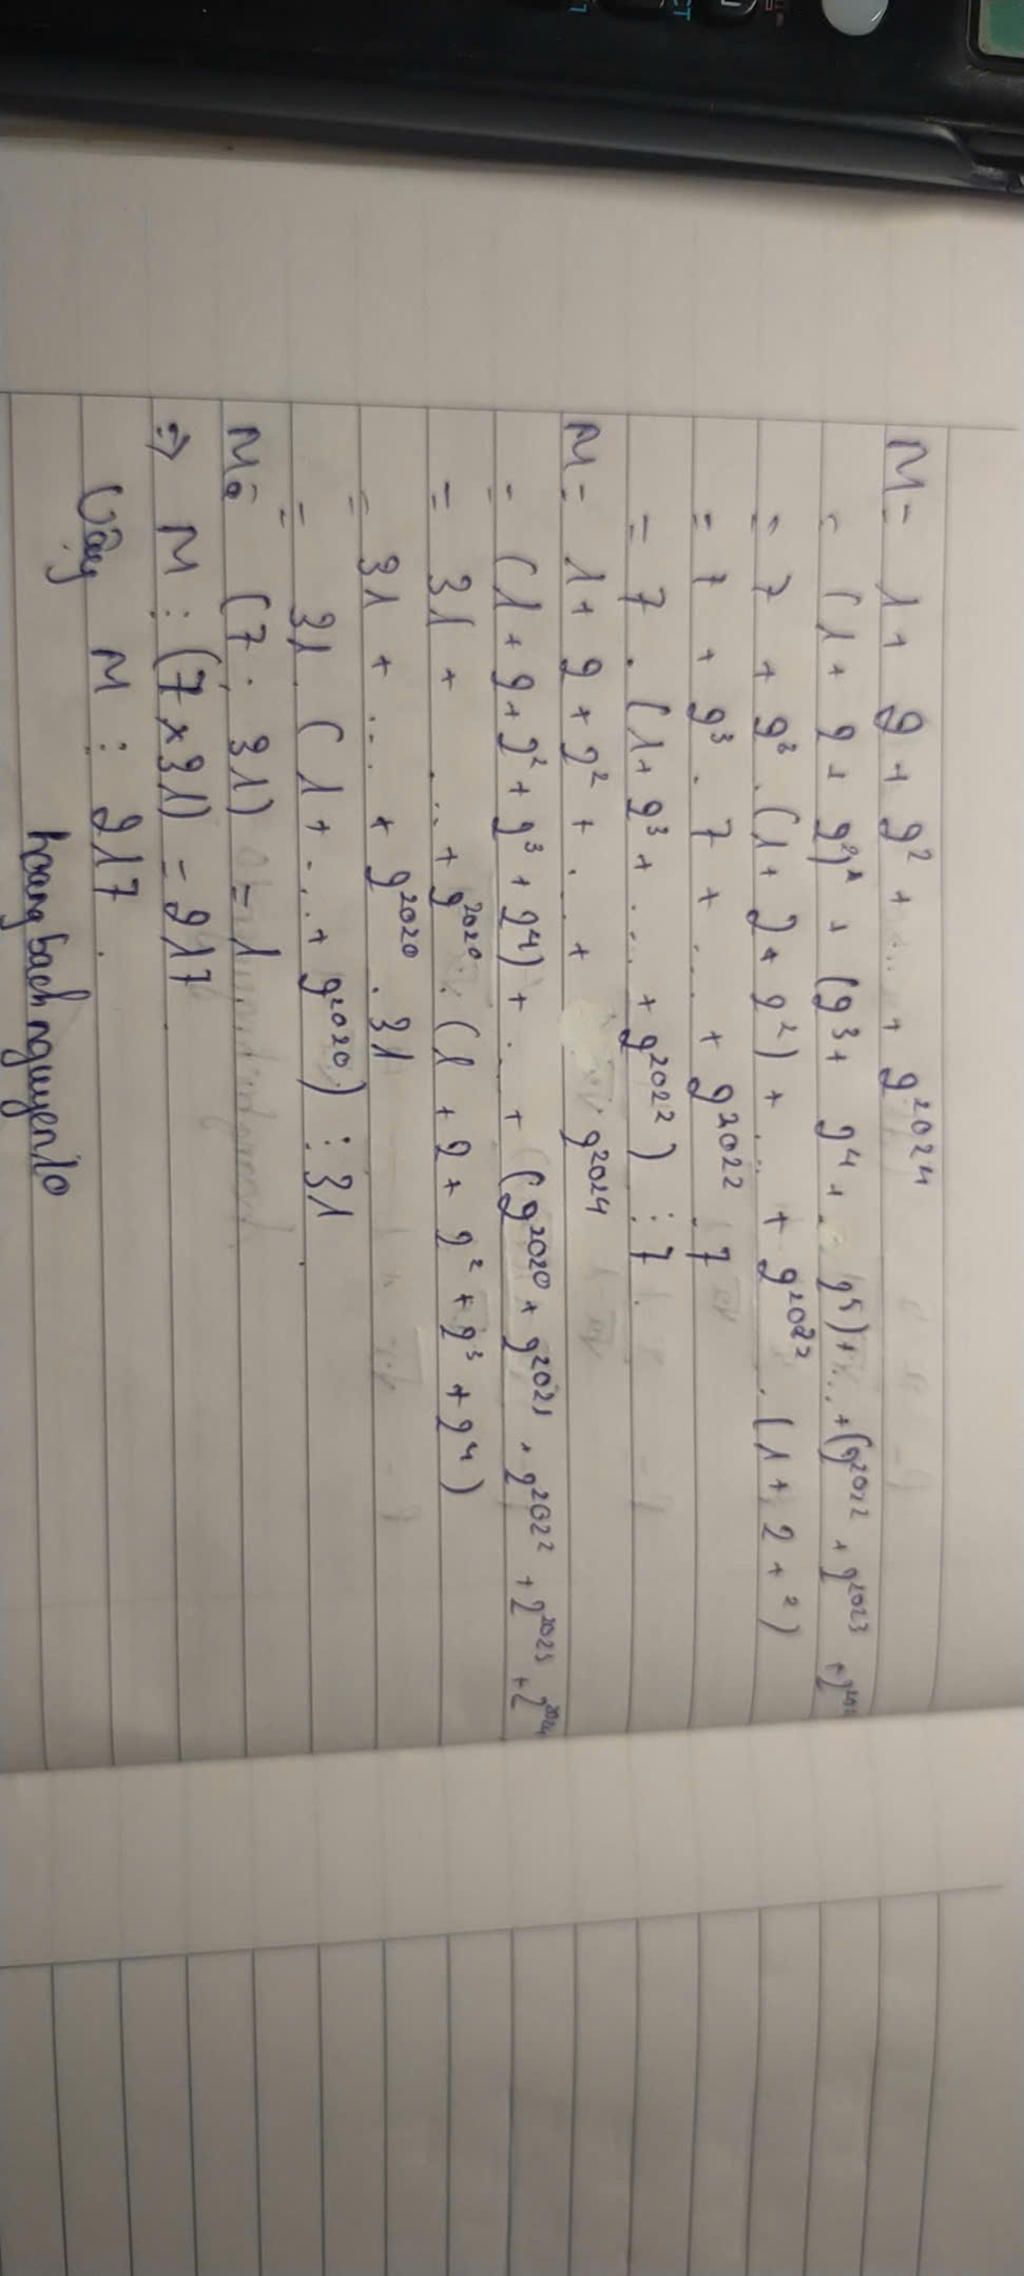 M = 1 + 2 + 2² + ... + 2²⁰²⁴
= (1 + 2 + 2²) + (2³ + 2⁴ + 2⁵) + ... + (2²⁰²² + 2²⁰²³ + 2²⁰²⁴
= 7 + 2³ . (1 + 2 + 2²) + ... + 2²⁰²² . (1 + 2 + ²)
= 7 + 2³ . 7 + ... + 2²⁰²² . 7
= 7 . (1 + 2³ + ... + 2²⁰²²) ⋮ 7
M = 1 + 2 + 2² + ... + 2²⁰²⁴
= (1 + 2 + 2² + 2³ + 2⁴) + ... + (2²⁰²⁰ + 2²⁰²¹ + 2²⁰²² + 2²⁰²³ + 2²⁰²⁴
= 31 + ... + 2²⁰²⁰ . (1 + 2 + 2² + 2³ + 2⁴)
= 31 + ... + 2²⁰²⁰ . 31
= 31 . (1 + ... + 2²⁰²⁰) ⋮ 31
Mà (7 ; 31) = 1
=> M ⋮ (7 x 31) = 217
Vậy M ⋮ 217.
hoang bach nguyen 10